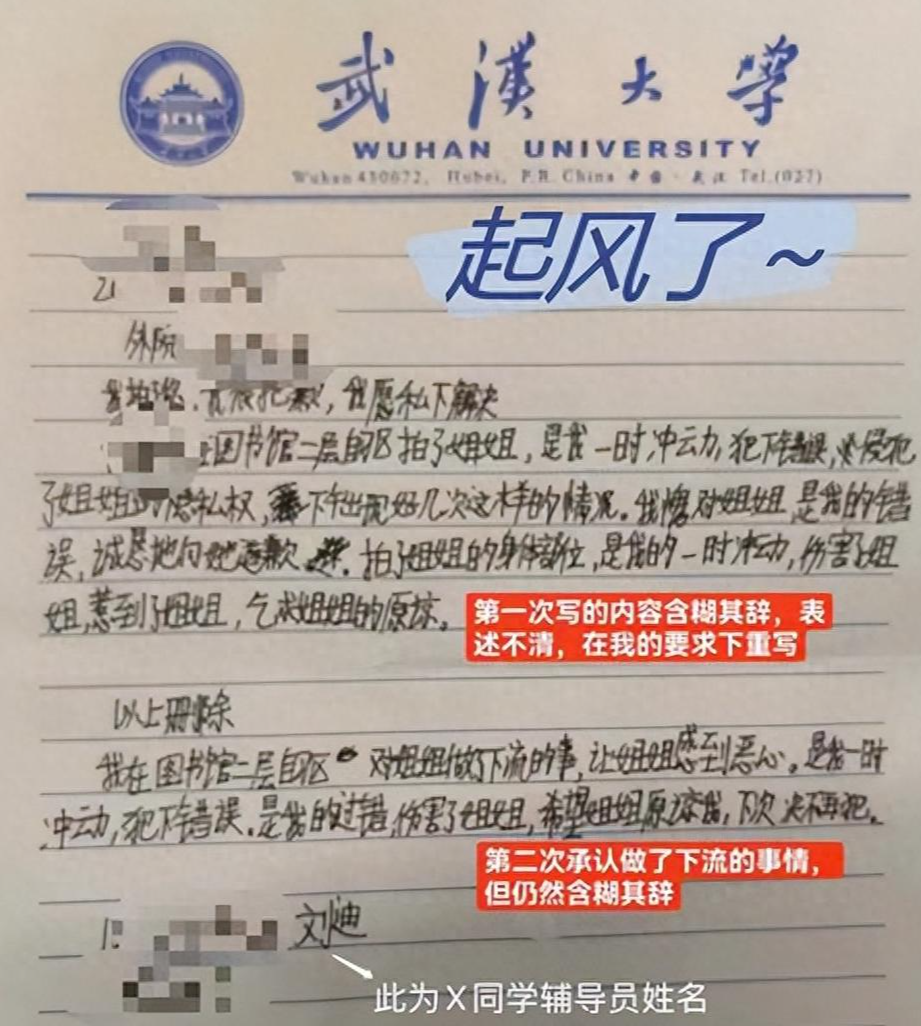 武漢大學
WUHAN UNIVERSITY
Wuhan 430072, Hubei, P.R. China 中国·武汉 Tel.(027)
起风了~
21
外院
我愿私下解决
图书馆二层自习区拍了姐姐，是我一时冲动，犯下错误，侵犯
了姐姐的隐私权，下午出现好几次这样的情况。我愧对姐姐是我的错
误，诚恳地向她道歉。拍了姐姐的身体部位，是我的一时冲动，伤害了姐
姐，惹到了姐姐，乞求姐姐的原谅。
第一次写的内容含糊其辞，表
述不清，在我的要求下重写
以上删除
我在图书馆二层自习区对姐姐做了下流的事，让姐姐感到恶心。是我一时
冲动，犯下错误。是我的过错，伤害了姐姐，希望姐姐原谅我，下次决不再犯。
第二次承认做了下流的事情，
但仍然含糊其辞
刘迪
此为X同学辅导员姓名